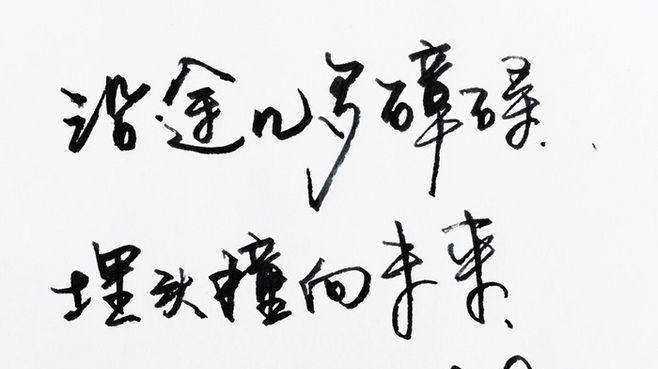 沿途几多障碍.
埋头撞向未来、